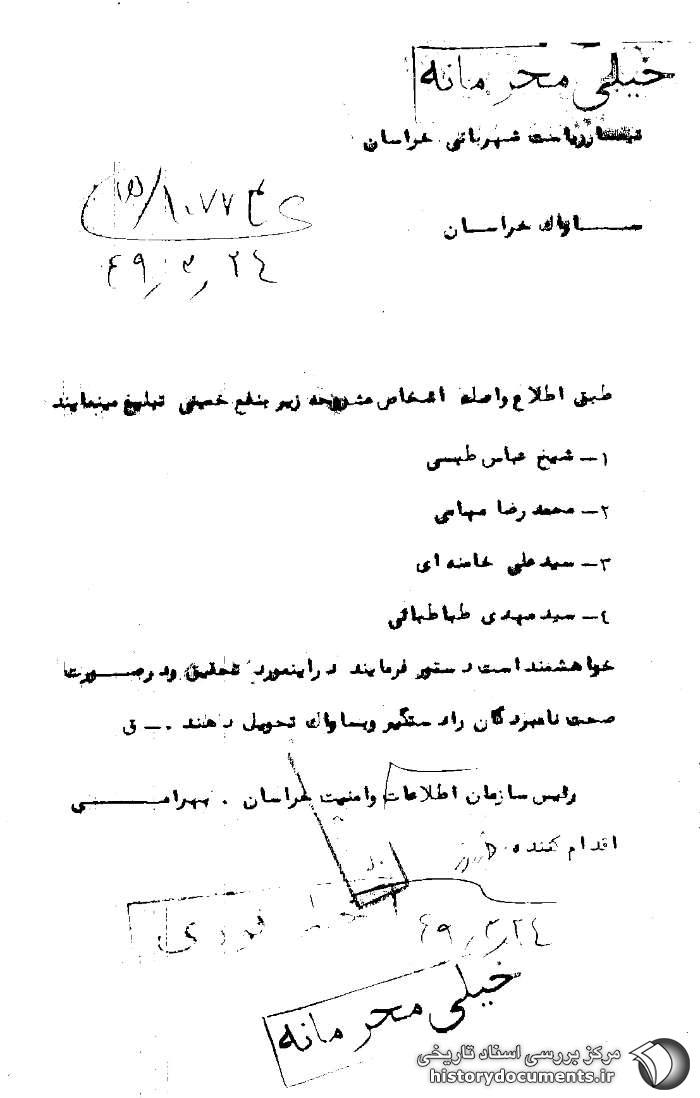 خیلی محرمانه
تیمسار ریاست شهربانی خراسان
۱۵/۱۰۷۷٤
ساواك خراسان
٤۹/۳/۲٤
طبق اطلاع واصله اشخاص مشروحه زیر بنفع خمینی تبلیغ مینمایند
۱- شیخ عباس طبسی
۲- محمد رضا مهامی
۳- سید علی خامنه ای
٤- سید مهدی طباطبائی
خواهشمند است دستور فرمایند در اینمورد تحقیق و در صورت
صحت نامبردگان را دستگیر و بساواك تحویل دهند .- ق
رئیس سازمان اطلاعات و امنیت خراسان . بهرامی
اقدام کننده
فوری
٤۹/۳/۲٤
خیلی محرمانه
مرکز بررسی اسناد تاریخی
historydocuments.ir